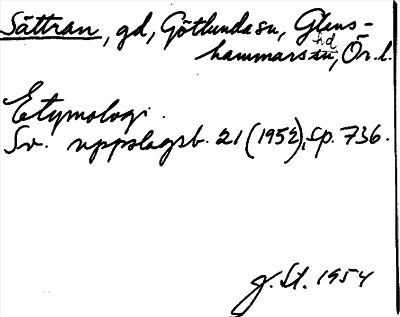 Sättran, gd, Götlunda sn, Glans-
hammars hd, Ör. l.
Etymologi.
Sv. uppslagsb. 21 (1952), sp. 736.
G. St. 1954